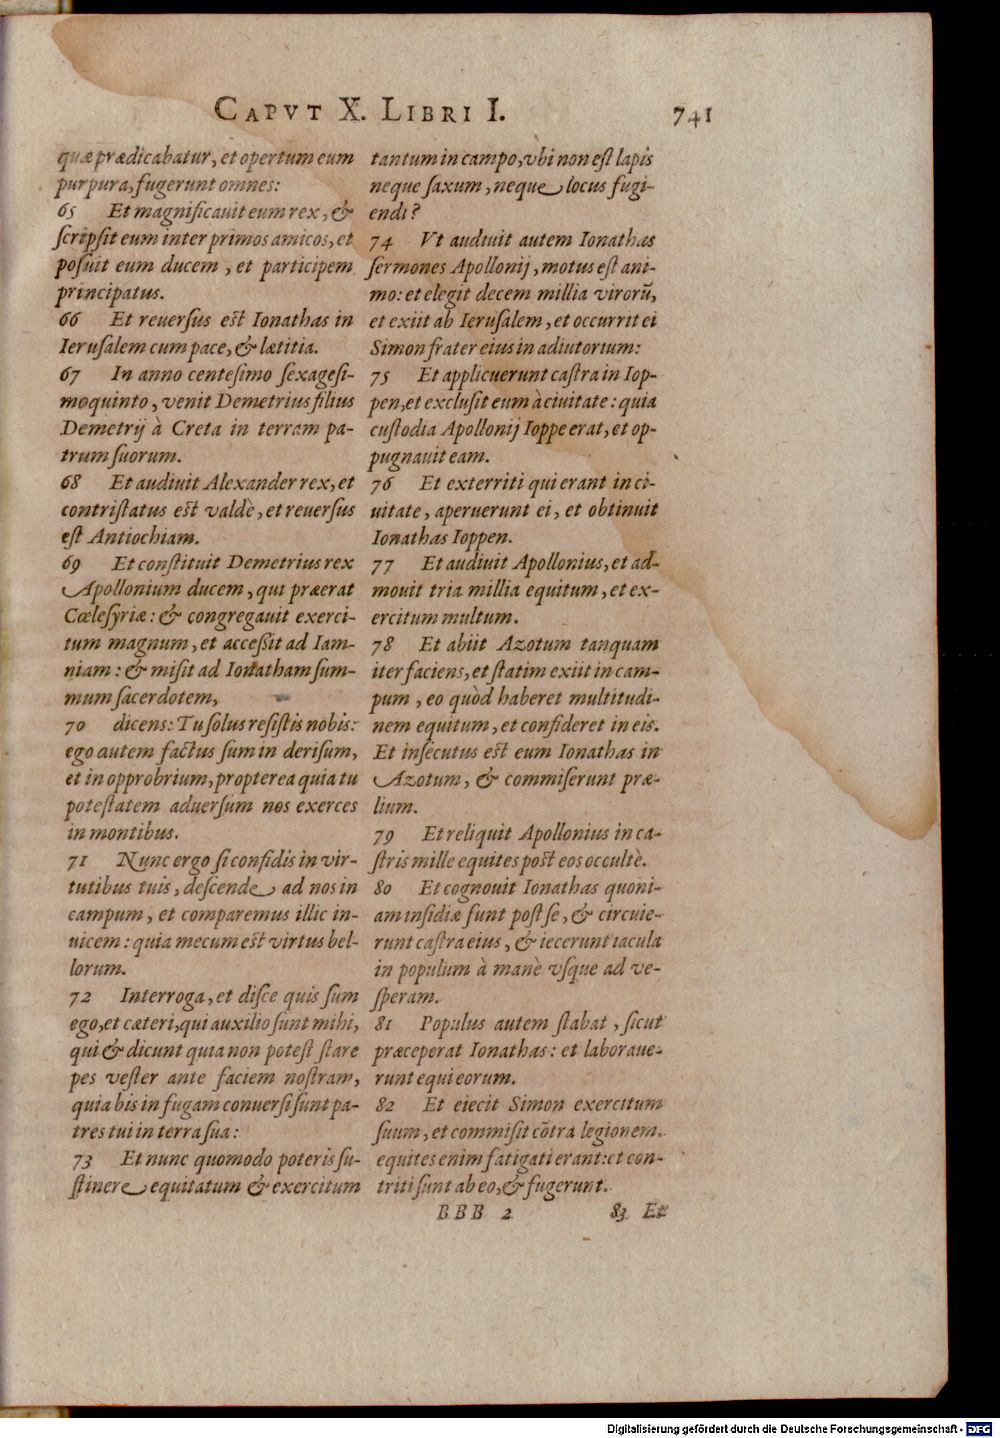 CAPVT X. LIBRI I. 741
quæ prædicabatur, et opertum eum
purpura, fugerunt omnes:
65 Et magnificauit eum rex, &
scripsit eum inter primos amicos, et
posuit eum ducem, et participem
principatus.
66 Et reuersus est Ionathas in
Ierusalem cum pace, & lætitia.
67 In anno centesimo sexagesi-
moquinto, venit Demetrius filius
Demetrij à Creta in terram pa-
trum suorum.
68 Et audiuit Alexander rex, et
contristatus est valdè, et reuersus
est Antiochiam.
69 Et constituit Demetrius rex
Apollonium ducem, qui præerat
Cœlesyriæ: & congregauit exerci-
tum magnum, et accessit ad Iam-
niam: & misit ad Ionatham sum-
mum sacerdotem,
70 dicens: Tu solus resistis nobis:
ego autem factus sum in derisum,
et in opprobrium, propterea quia tu
potestatem aduersum nos exerces
in montibus.
71 Nunc ergo si confidis in vir-
tutibus tuis, descende ad nos in
campum, et comparemus illic in-
uicem: quia mecum est virtus bel-
lorum.
72 Interroga, et disce quis sum
ego, et cæteri, qui auxilio sunt mihi,
qui & dicunt quia non potest stare
pes vester ante faciem nostram,
quia bis in fugam conuersi sunt pa-
tres tui in terra sua:
73 Et nunc quomodo poteris su-
stinere equitatum & exercitum
tantum in campo, vbi non est lapis
neque saxum, neque locus fugi-
endi?
74 Vt audiuit autem Ionathas
sermones Apollonij, motus est ani-
mo: et elegit decem millia virorũ,
et exiit ab Ierusalem, et occurrit ei
Simon frater eius in adiutorium:
75 Et applicuerunt castra in Iop-
pen, et exclusit eum à ciuitate: quia
custodia Apollonij Ioppe erat, et op-
pugnauit eam.
76 Et exterriti qui erant in ci-
uitate, aperuerunt ei, et obtinuit
Ionathas Ioppen.
77 Et audiuit Apollonius, et ad-
mouit tria millia equitum, et ex-
ercitum multum.
78 Et abiit Azotum tanquam
iter faciens, et statim exiit in cam-
pum, eo quòd haberet multitudi-
nem equitum, et confideret in eis.
Et insecutus est eum Ionathas in
Azotum, & commiserunt præ-
lium.
79 Et reliquit Apollonius in ca-
stris mille equites post eos occultè.
80 Et cognouit Ionathas quoni-
am insidiæ sunt post se, & circuie-
runt castra eius, & iecerunt iacula
in populum à manè vsque ad ve-
speram.
81 Populus autem stabat, sicut
præceperat Ionathas: et laboraue-
runt equi eorum.
82 Et eiecit Simon exercitum
suum, et commisit cõtra legionem.
equites enim fatigati erant: et con-
triti sunt ab eo, & fugerunt.
BBB 2 83 Et
Digitalisierung gefördert durch die Deutsche Forschungsgemeinschaft - DFG